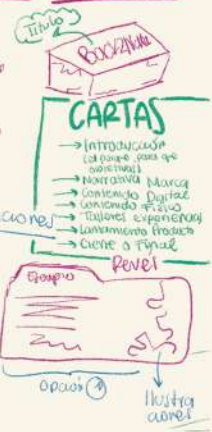 Titulo
CARTAS
→ Introducción
(el porque, para que
objetivos)
→ Narrativa Marca
→ Contenido Digital
→ Contenido Físico
→ Talleres experiencias
→ Lanzamiento Producto
→ Cierre o Final
ciones
Revel
Ejemplo
opción 1
Ilustra
ciones